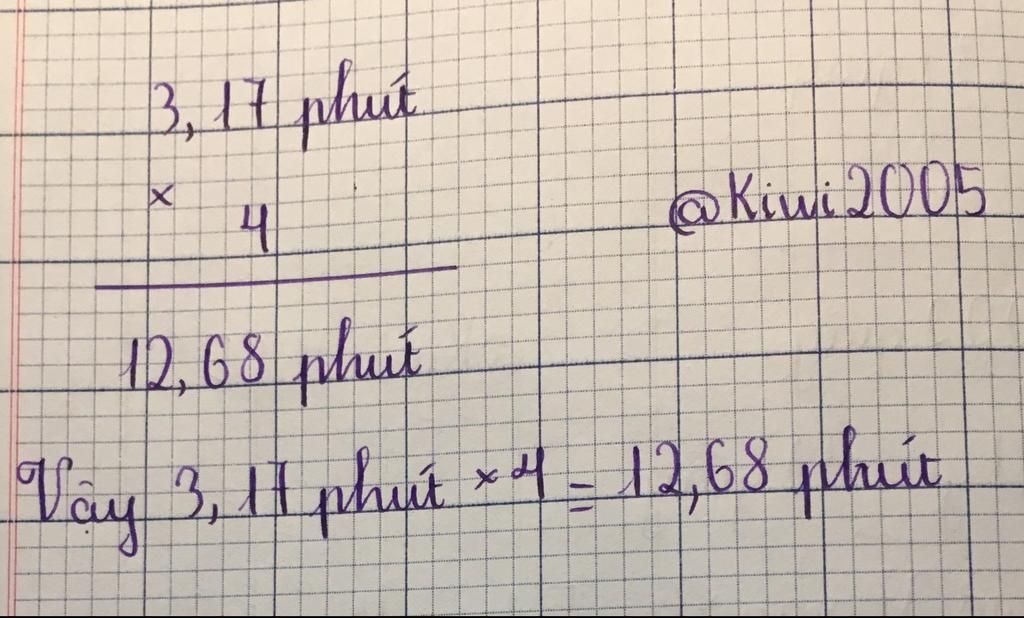 3,17 phút
×
4
@Kiwi2005
12,68 phút
Vậy 3,17 phút × 4 = 12,68 phút